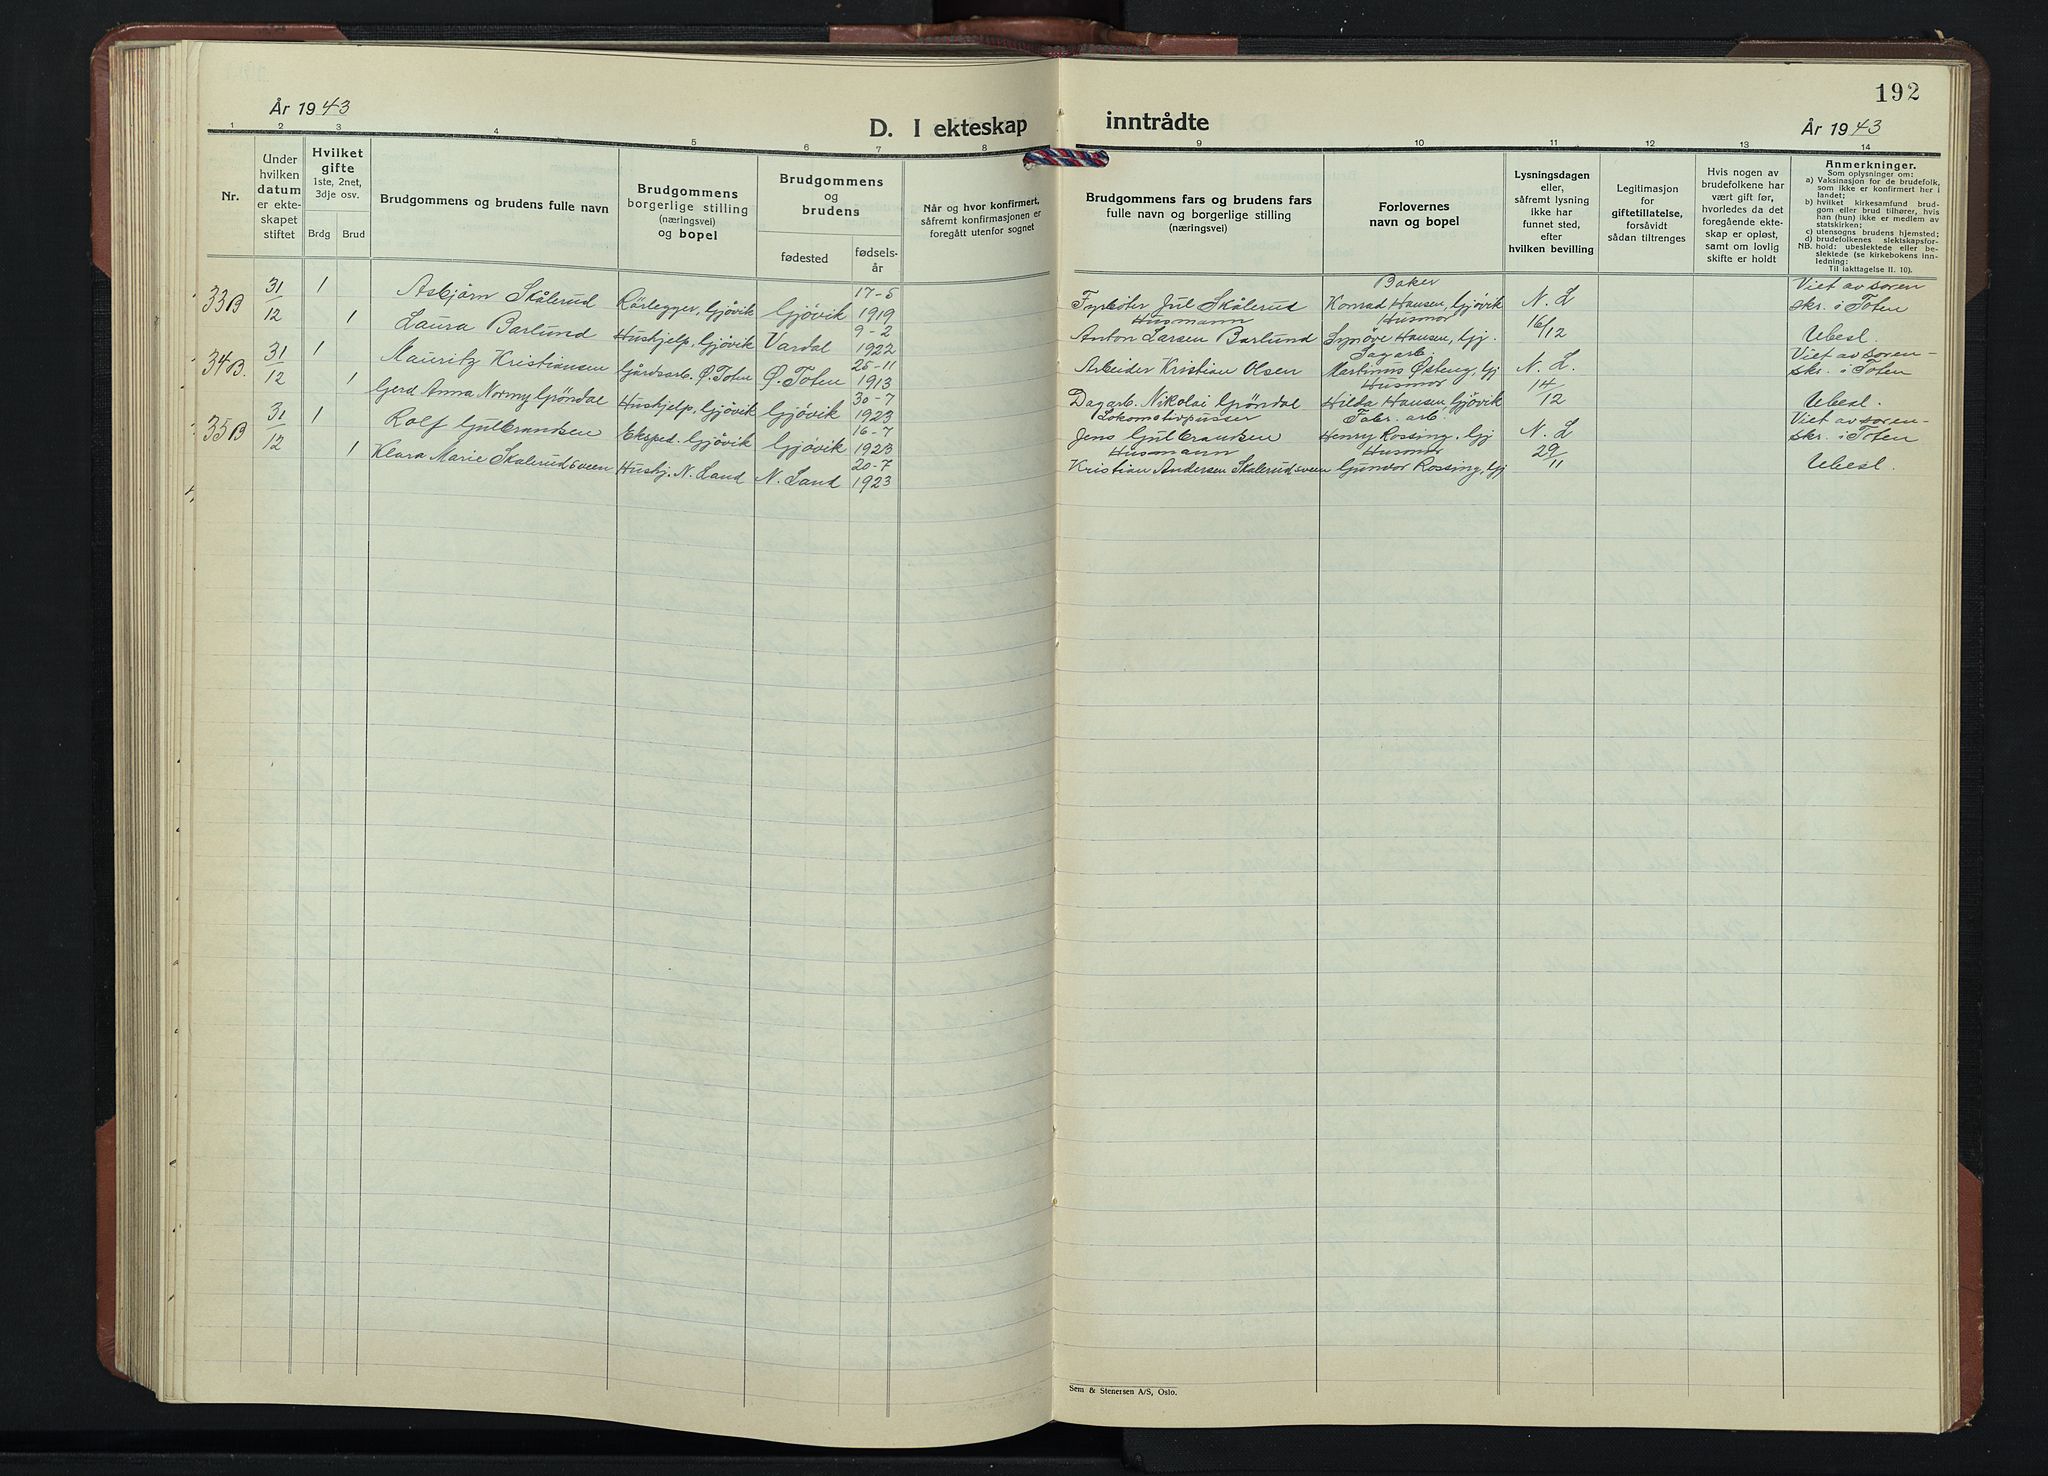 192
År 1943
D. I ekteskap inntrådte
År 1943
1 2 3 4 5 6 7 8 9 10 11 12 13 14
Nr.
Under hvilken datum er ekteskapet stiftet
Hvilket gifte
1ste, 2net, 3dje osv.
Brdg Brud
Brudgommens og brudens fulle navn
Brudgommens borgerlige stilling (næringsvei) og bopel
Brudgommens og brudens
fødested
fødselsår
Når og hvor konfirmert, såfremt konfirmasjonen er foregått utenfor sognet
Brudgommens fars og brudens fars fulle navn og borgerlige stilling (næringsvei)
Forlovernes navn og bopel
Lysningsdagen eller, såfremt lysning ikke har funnet sted, efter hvilken bevilling
Legitimasjon for giftetillatelse, forsåvidt sådan tiltrenges
Hvis nogen av brudefolkene har vært gift før, hvorledes da det foregående ekteskap er opløst, samt om lovlig skifte er holdt
Anmerkninger.
Som oplysninger om:
a) Vaksinasjon for de brudefolk, som ikke er konfirmert her i landet;
b) hvilket kirkesamfund brudgom eller brud tilhører, hvis han (hun) ikke er medlem av statskirken;
c) utensogns brudens hjemsted;
d) brudefolkenes slektskapsforhold: ubeslektede eller beslektede (se kirkebokens innledning:
NB.
Til iakttagelse II. 10).
33B 31/12 1 Asbjørn Skålerud Rørlegger, Gjøvik Gjøvik 17-5 1919 Fyrbøter Jul Skålerud Baker Konrad Hansen, Gjøvik N. L 16/12 Viet av soren skr. i Toten
1 Laura Barlund Hushjelp, Gjøvik Vardal 9-2 1922 Husmann Anton Larsen Barlund Husmor Synøve Hansen, Gj. Ubesl.
34B. 31/12 1 Mauritz Kristiansen Gårdsarb. Ø. Toten Ø. Toten 25-11 1913 Arbeider Kristian Olsen Sagarb. Martinus Østeng, Gj N. L. 14/12 Viet av soren-skr. i Toten
1 Gerd Anna Normy Gröndal Hushjelp, Gjøvik Gjøvik 30-7 1923 Dagarb. Nikolai Gröndal Husmor Hilda Hansen, Gjøvik Ubesl.
35B 31/12 1 Rolf Gulbrandsen Eksped. Gjøvik Gjøvik 16-7 1923 Lokomotivpusser Jens Gulbrandsen Fabr. arb Henry Rossing, Gj N. L 29/11 Viet av soren-skr. i Toten
1 Klara Marie Skalerudsveen Hushj. N. Land N. Land 20-7 1923 Husmann Kristian Andersen Skalerudsveen Husmor Gunvor Rossing, Gj Ubesl.
Sem & Stenersen A/S, Oslo.